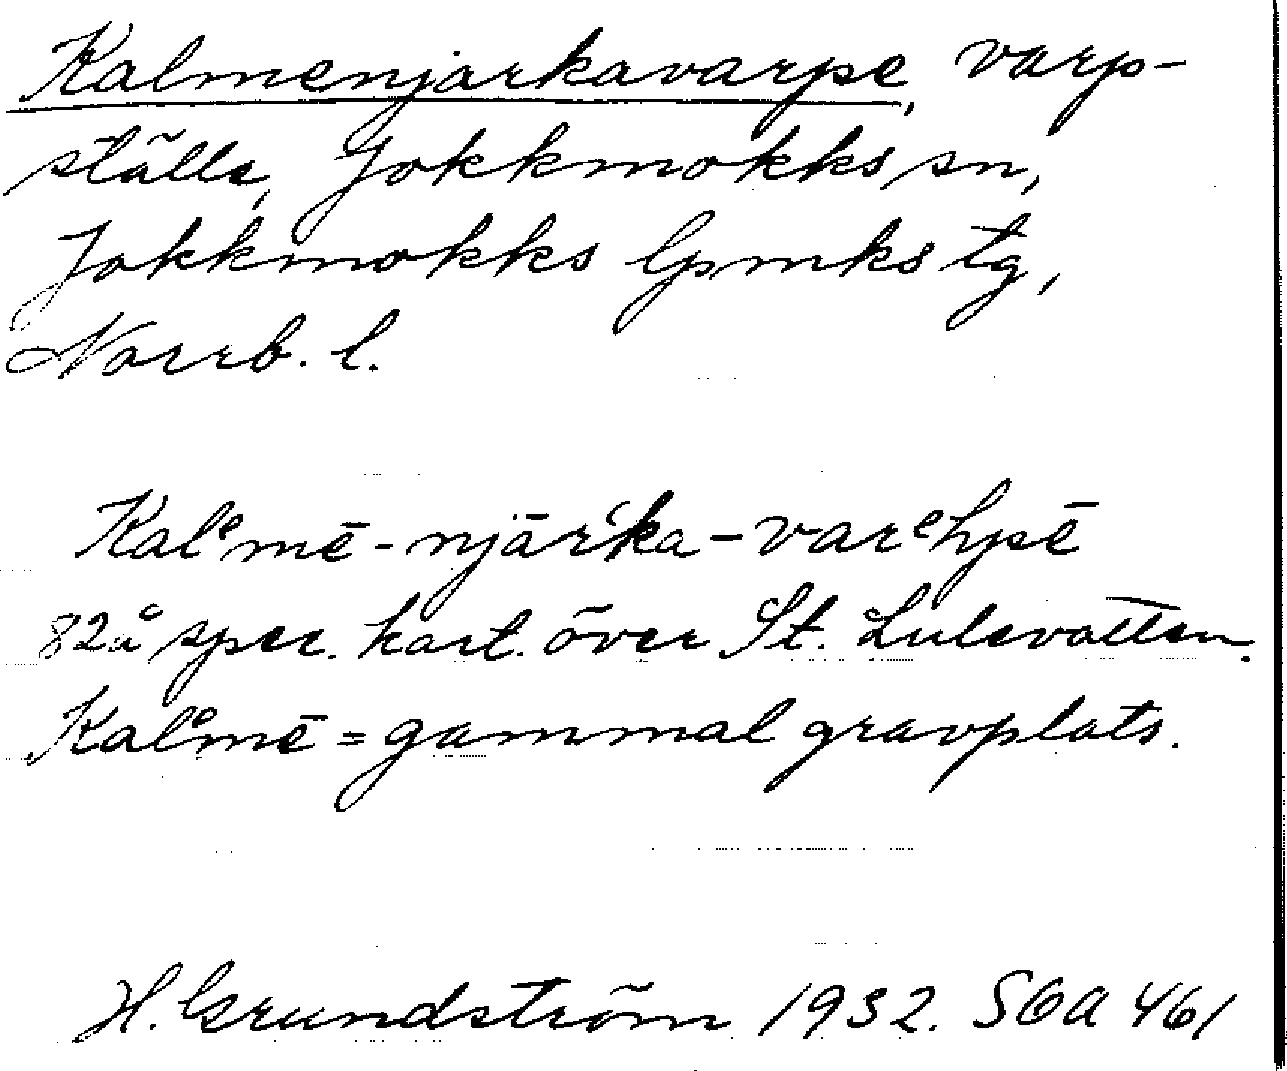 Kalmenjarkavarpe, varp-
ställe, Jokkmokks sn,
Jokkmokks lpmks tg,
Norrb. l.
Kalᵉmē-njār'ka-varᵉhpē
82 å spec. kart. över St. Lulevatten.
Kalᵉmē = gammal gravplats.
H. Grundström 1932. SOA 461